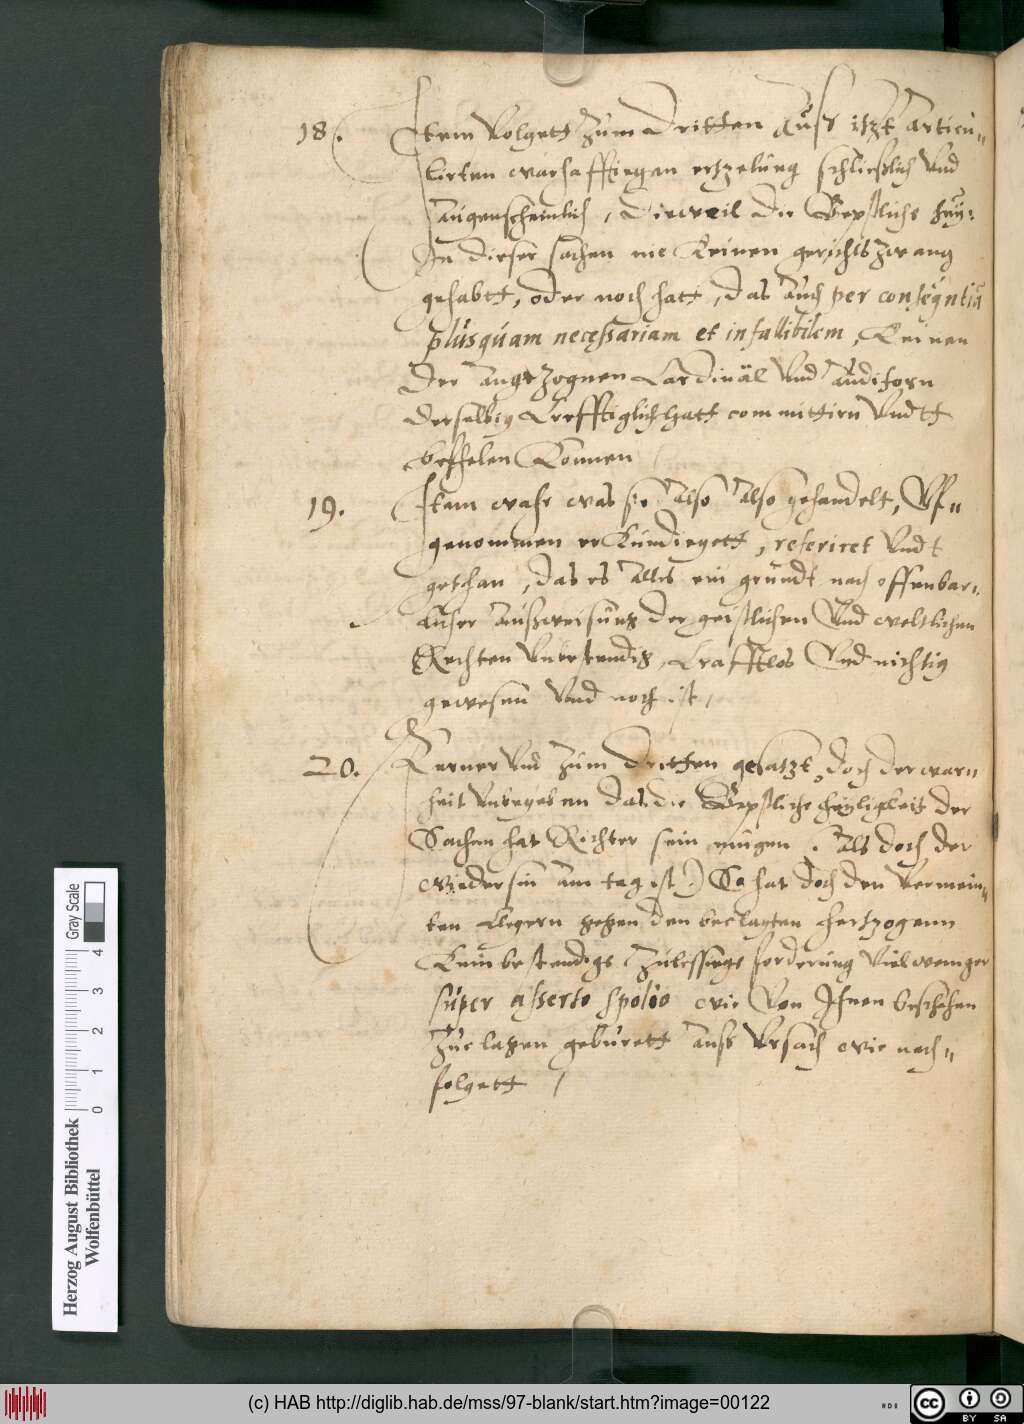 18. Item volgett zum dritten Auß itzt Articu=
lirten warhafftiegen ertzelung schließlich Vnd
augenscheinlich, Dieweil die Bepstliche hey:
In dieser sachen nie Keinen gerichtszwang
gehabtt, oder noch hatt, das auch per conseqntiã
plusquam necessariam et infallibilem, Keinen
Der angezognen Cardinäl Vnd Auditorn
derselbig Crefftiglich hatt committirn Vndtt
beffelen Können
19. Item wahr was sie also also gehandelt, Vff=
genommen erKundiegett, referiret Vndt
gethan, das es alles ein grundt nach offenbar:
licher außweisung der geistlichen Vnd weltlichen
Rechten Vnbestendig, Crafftlos Vnd nichtig
gewesen Vnd noch ist,
20. Ferner Vnd zum dritten gesatzt, doch der warn
heit Vnbegeben das die Bepstliche heyligkeit der
Sachen hat Richter sein mugen. (als doch der
wiedersin am tag ist) So hat doch den Vermein=
ten Clegern gegen den beclagten hertzogenn
Kein bestendige Zulessiege forderung Viel weniger
super asserto spolio wie Von Ihnen beschehen
Zuclagen geburett auß Vrsach wie nach=
folgett
Herzog August Bibliothek
Wolfenbüttel
0 1 2 3 4
Gray Scale
(c) HAB http://diglib.hab.de/mss/97-blank/start.htm?image=00122
HAB
cc BY SA